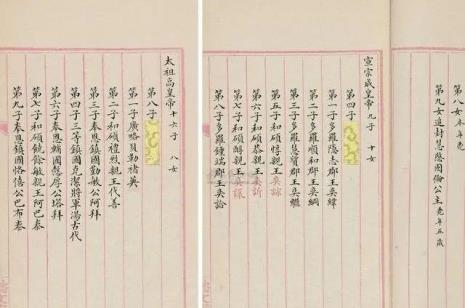 太祖高皇帝 十六子 八女
第八子
第一子廣略貝勒褚英
第二子和碩禮烈親王代善
第三子奉恩鎮國勤敏公阿拜
第四子三等鎮國克潔將軍湯古代
第六子奉恩輔國愨厚公塔拜
第七子和碩饒餘敏親王阿巴泰
第九子奉恩鎮國恪僖公巴布泰
第八女
第九女追封慧愍固倫公主 年五歲
宣宗成皇帝 九子 十女
第四子
第一子多羅隱志郡王奕緯
第二子多羅順和郡王奕綱
第三子多羅慧質郡王奕繼
第五子和碩惇親王奕誴
第六子和碩恭親王奕訢
第七子和碩醇親王奕譞
第八子多羅鍾端郡王奕詥